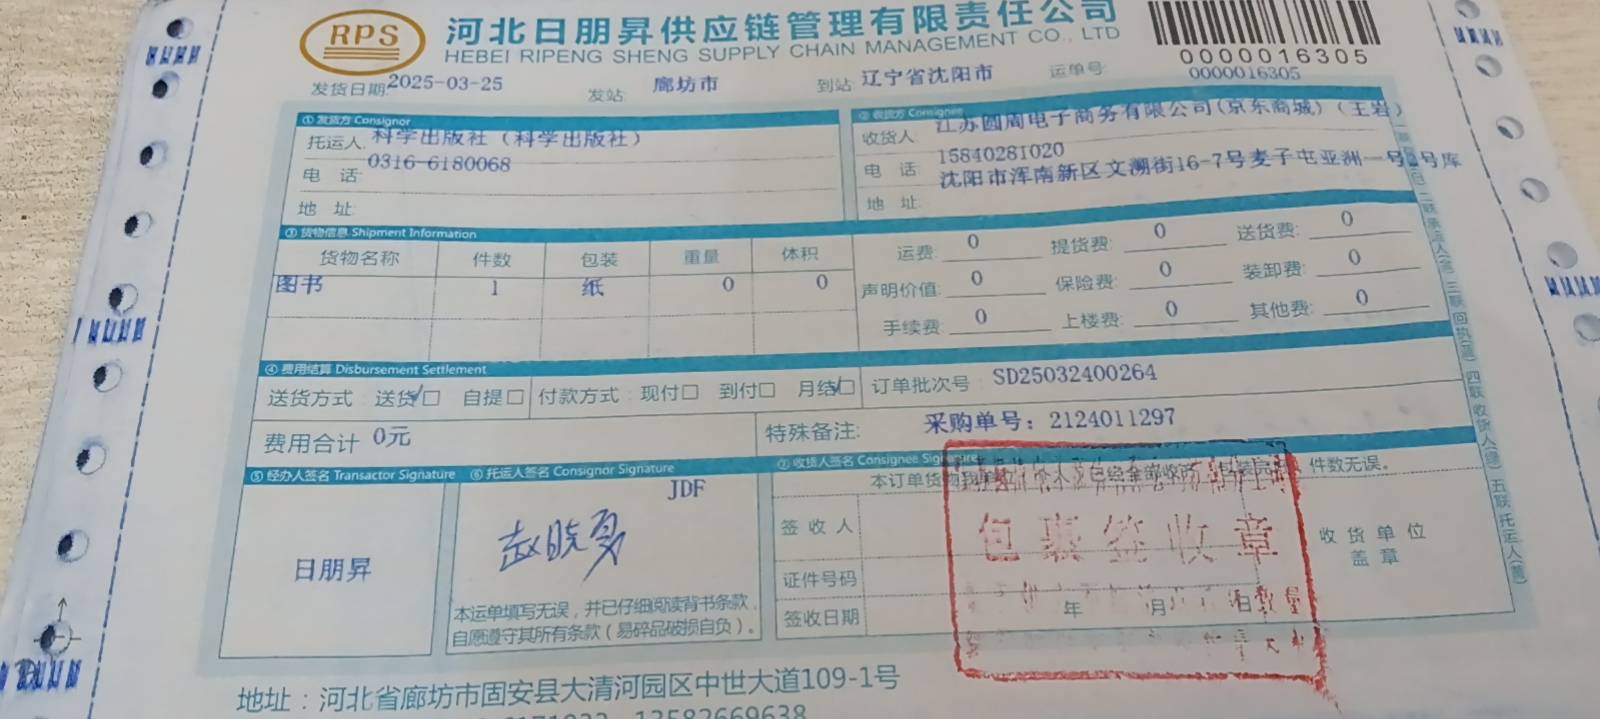 RPS 河北日朋昇供应链管理有限责任公司
HEBEI RIPENG SHENG SUPPLY CHAIN MANAGEMENT CO., LTD
0000016305
发货日期: 2025-03-25 发站: 廊坊市 到站: 辽宁省沈阳市 运单号: 0000016305
① 发货方 Consignor
托运人: 科学出版社（科学出版社）
电 话: 0316-6180068
地 址:
② 收货方 Consignee
收货人: 江苏圆周电子商务有限公司(京东商城)（王岩）
电 话: 15840281020
地 址: 沈阳市浑南新区文溯街16-7号麦子屯亚洲一号 号库
③ 货物信息 Shipment Information
货物名称 件数 包装 重量 体积
图书 1 纸 0 0
运费: 0 提货费: 0 送货费: 0
声明价值: 0 保险费: 0 装卸费: 0
手续费: 0 上楼费: 0 其他费: 0
④ 费用结算 Disbursement Settlement
送货方式: 送货☑ 自提□ 付款方式: 现付□ 到付□ 月结☑ 订单批次号: SD25032400264
费用合计 0元 特殊备注: 采购单号: 2124011297
⑤ 经办人签名 Transactor Signature
日朋昇
⑥ 托运人签名 Consignor Signature
JDF
本运单填写无误，并已仔细阅读背书条款，
自愿遵守其所有条款（易碎品破损自负）。
⑦ 收货人签名 Consignee Signature
本订单货物 件数无误。
签 收 人
包裹签收章
收货单位
盖 章
证件号码
签收日期 年 月 日
数量
地址：河北省廊坊市固安县大清河园区中世大道109-1号
13582669638
二联 三联回执(蓝) 四联 收货人(绿) 五联 托运人(黄)